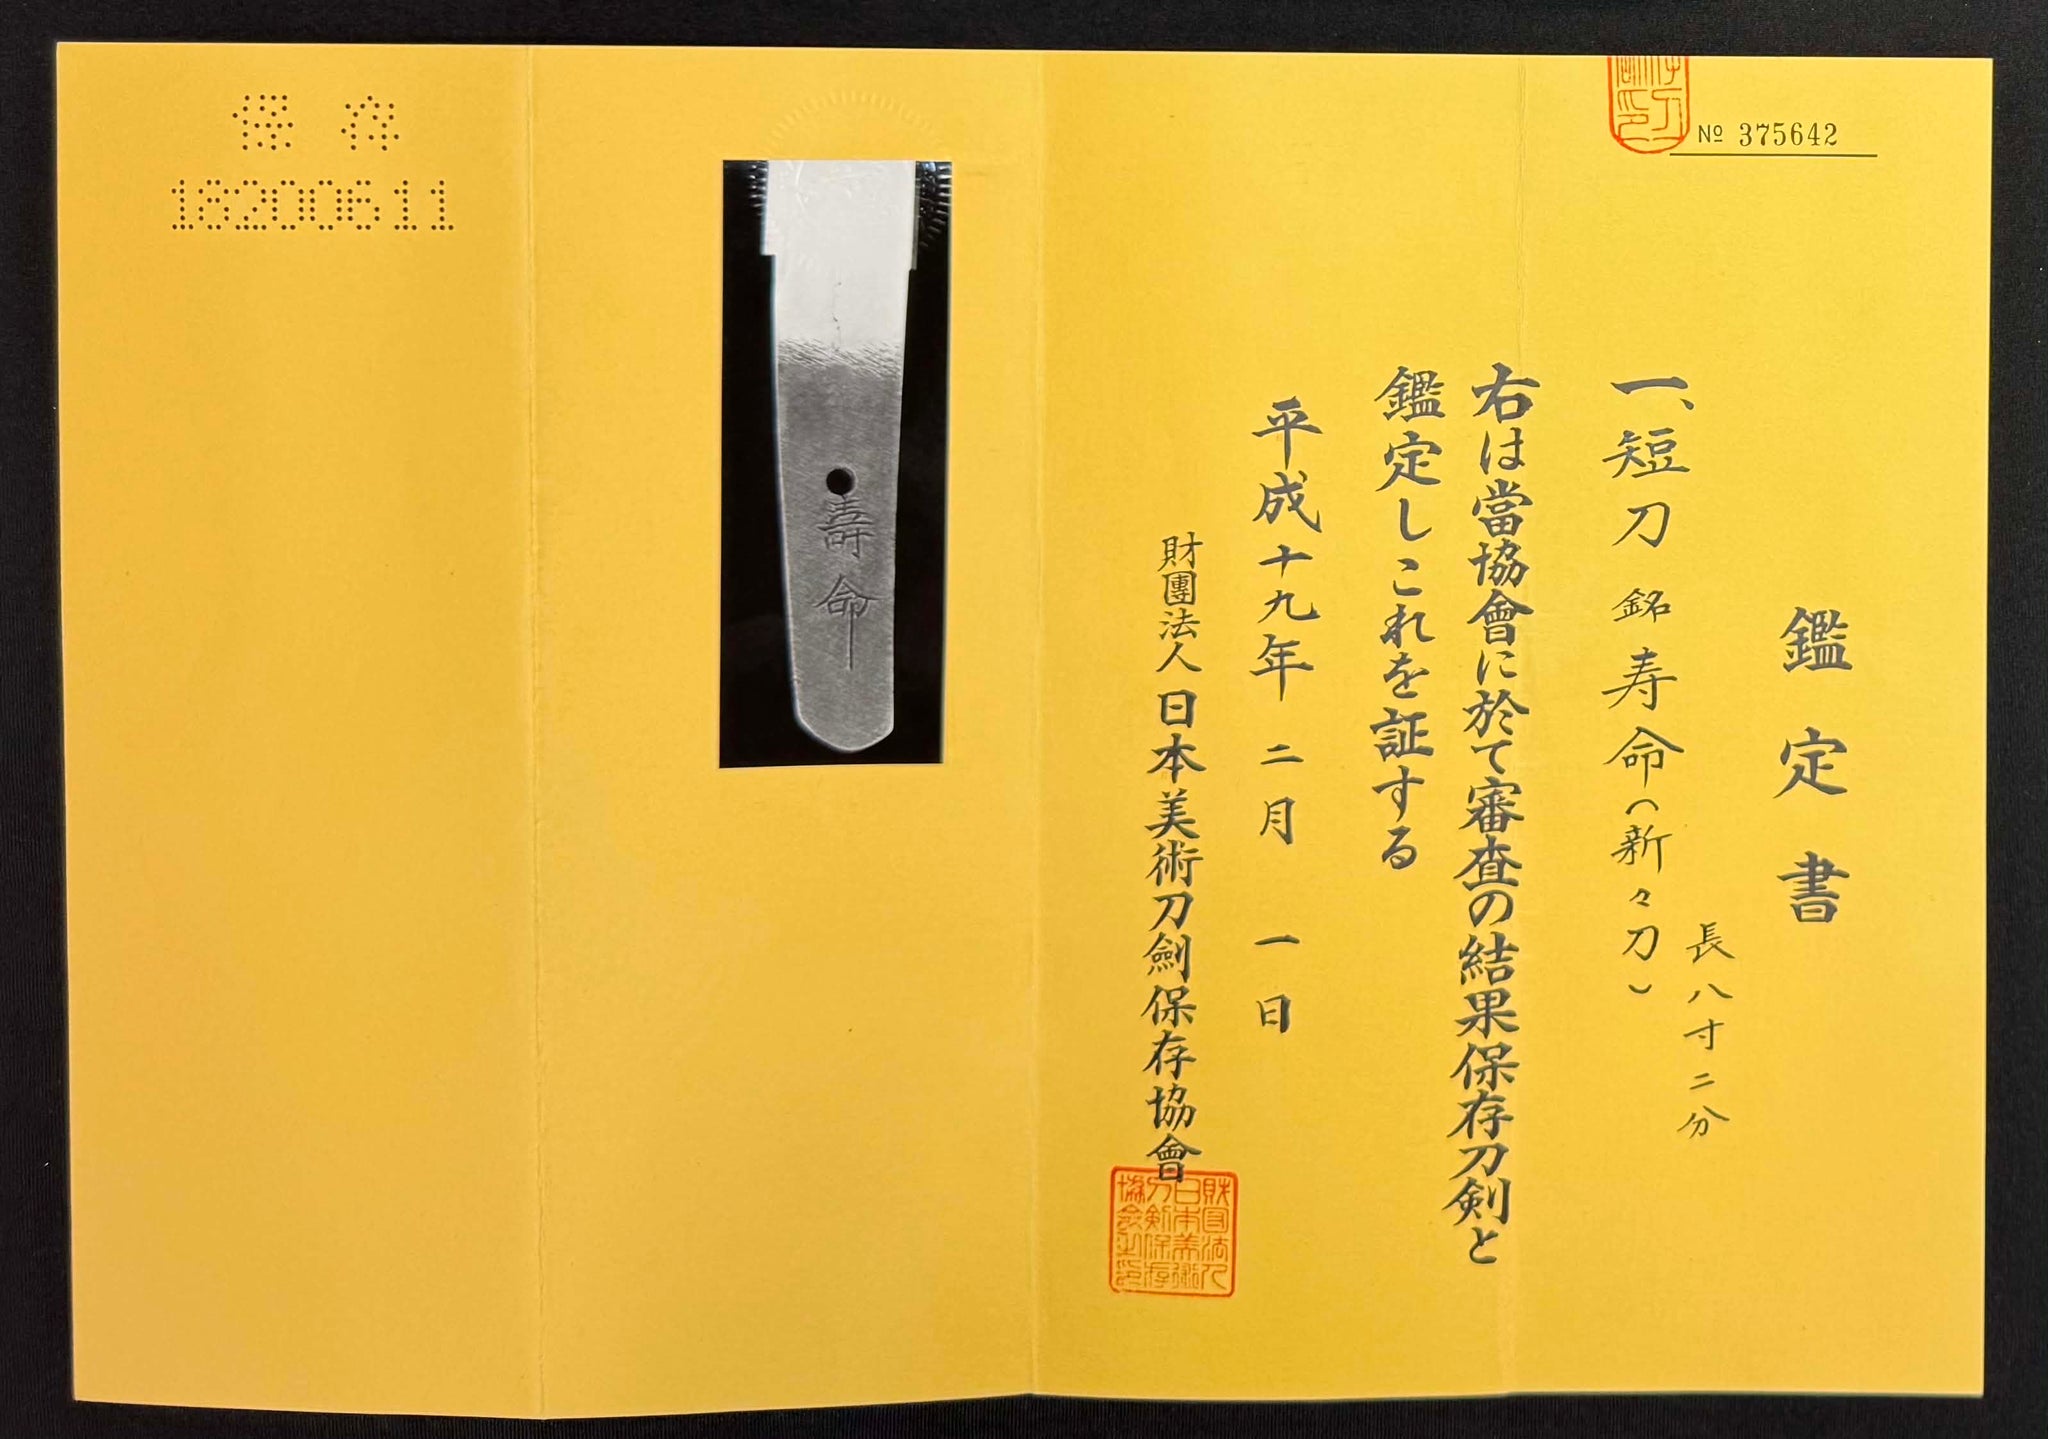 № 375642
鑑定書
一、短刀 銘 寿命(新々刀)
長八寸二分
右は當協會に於て審査の結果保存刀剣と
鑑定しこれを証する
平成十九年二月一日
財團法人日本美術刀劍保存協會
財団法人
日本美術
刀剣保存
協会之印
壽命
保存
18200611